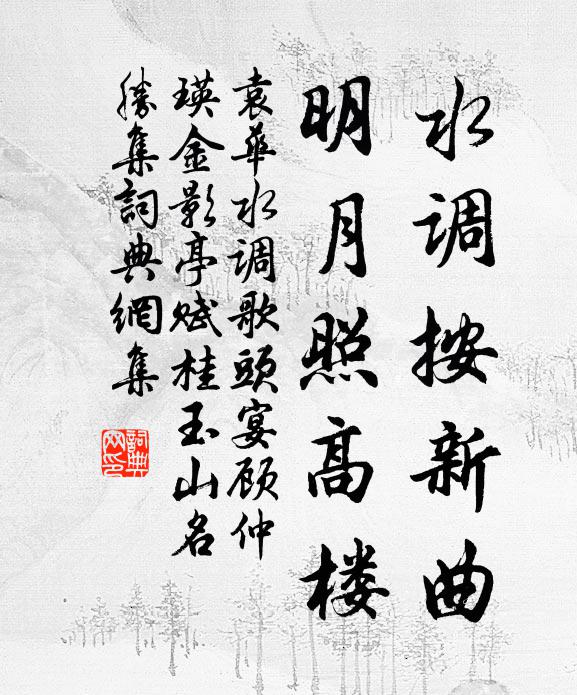 水调按新曲
明月照高楼
袁華水调歌頭宴顾仲
瑛金影亭赋桂玉山名
勝集詞典網集
詞典网印